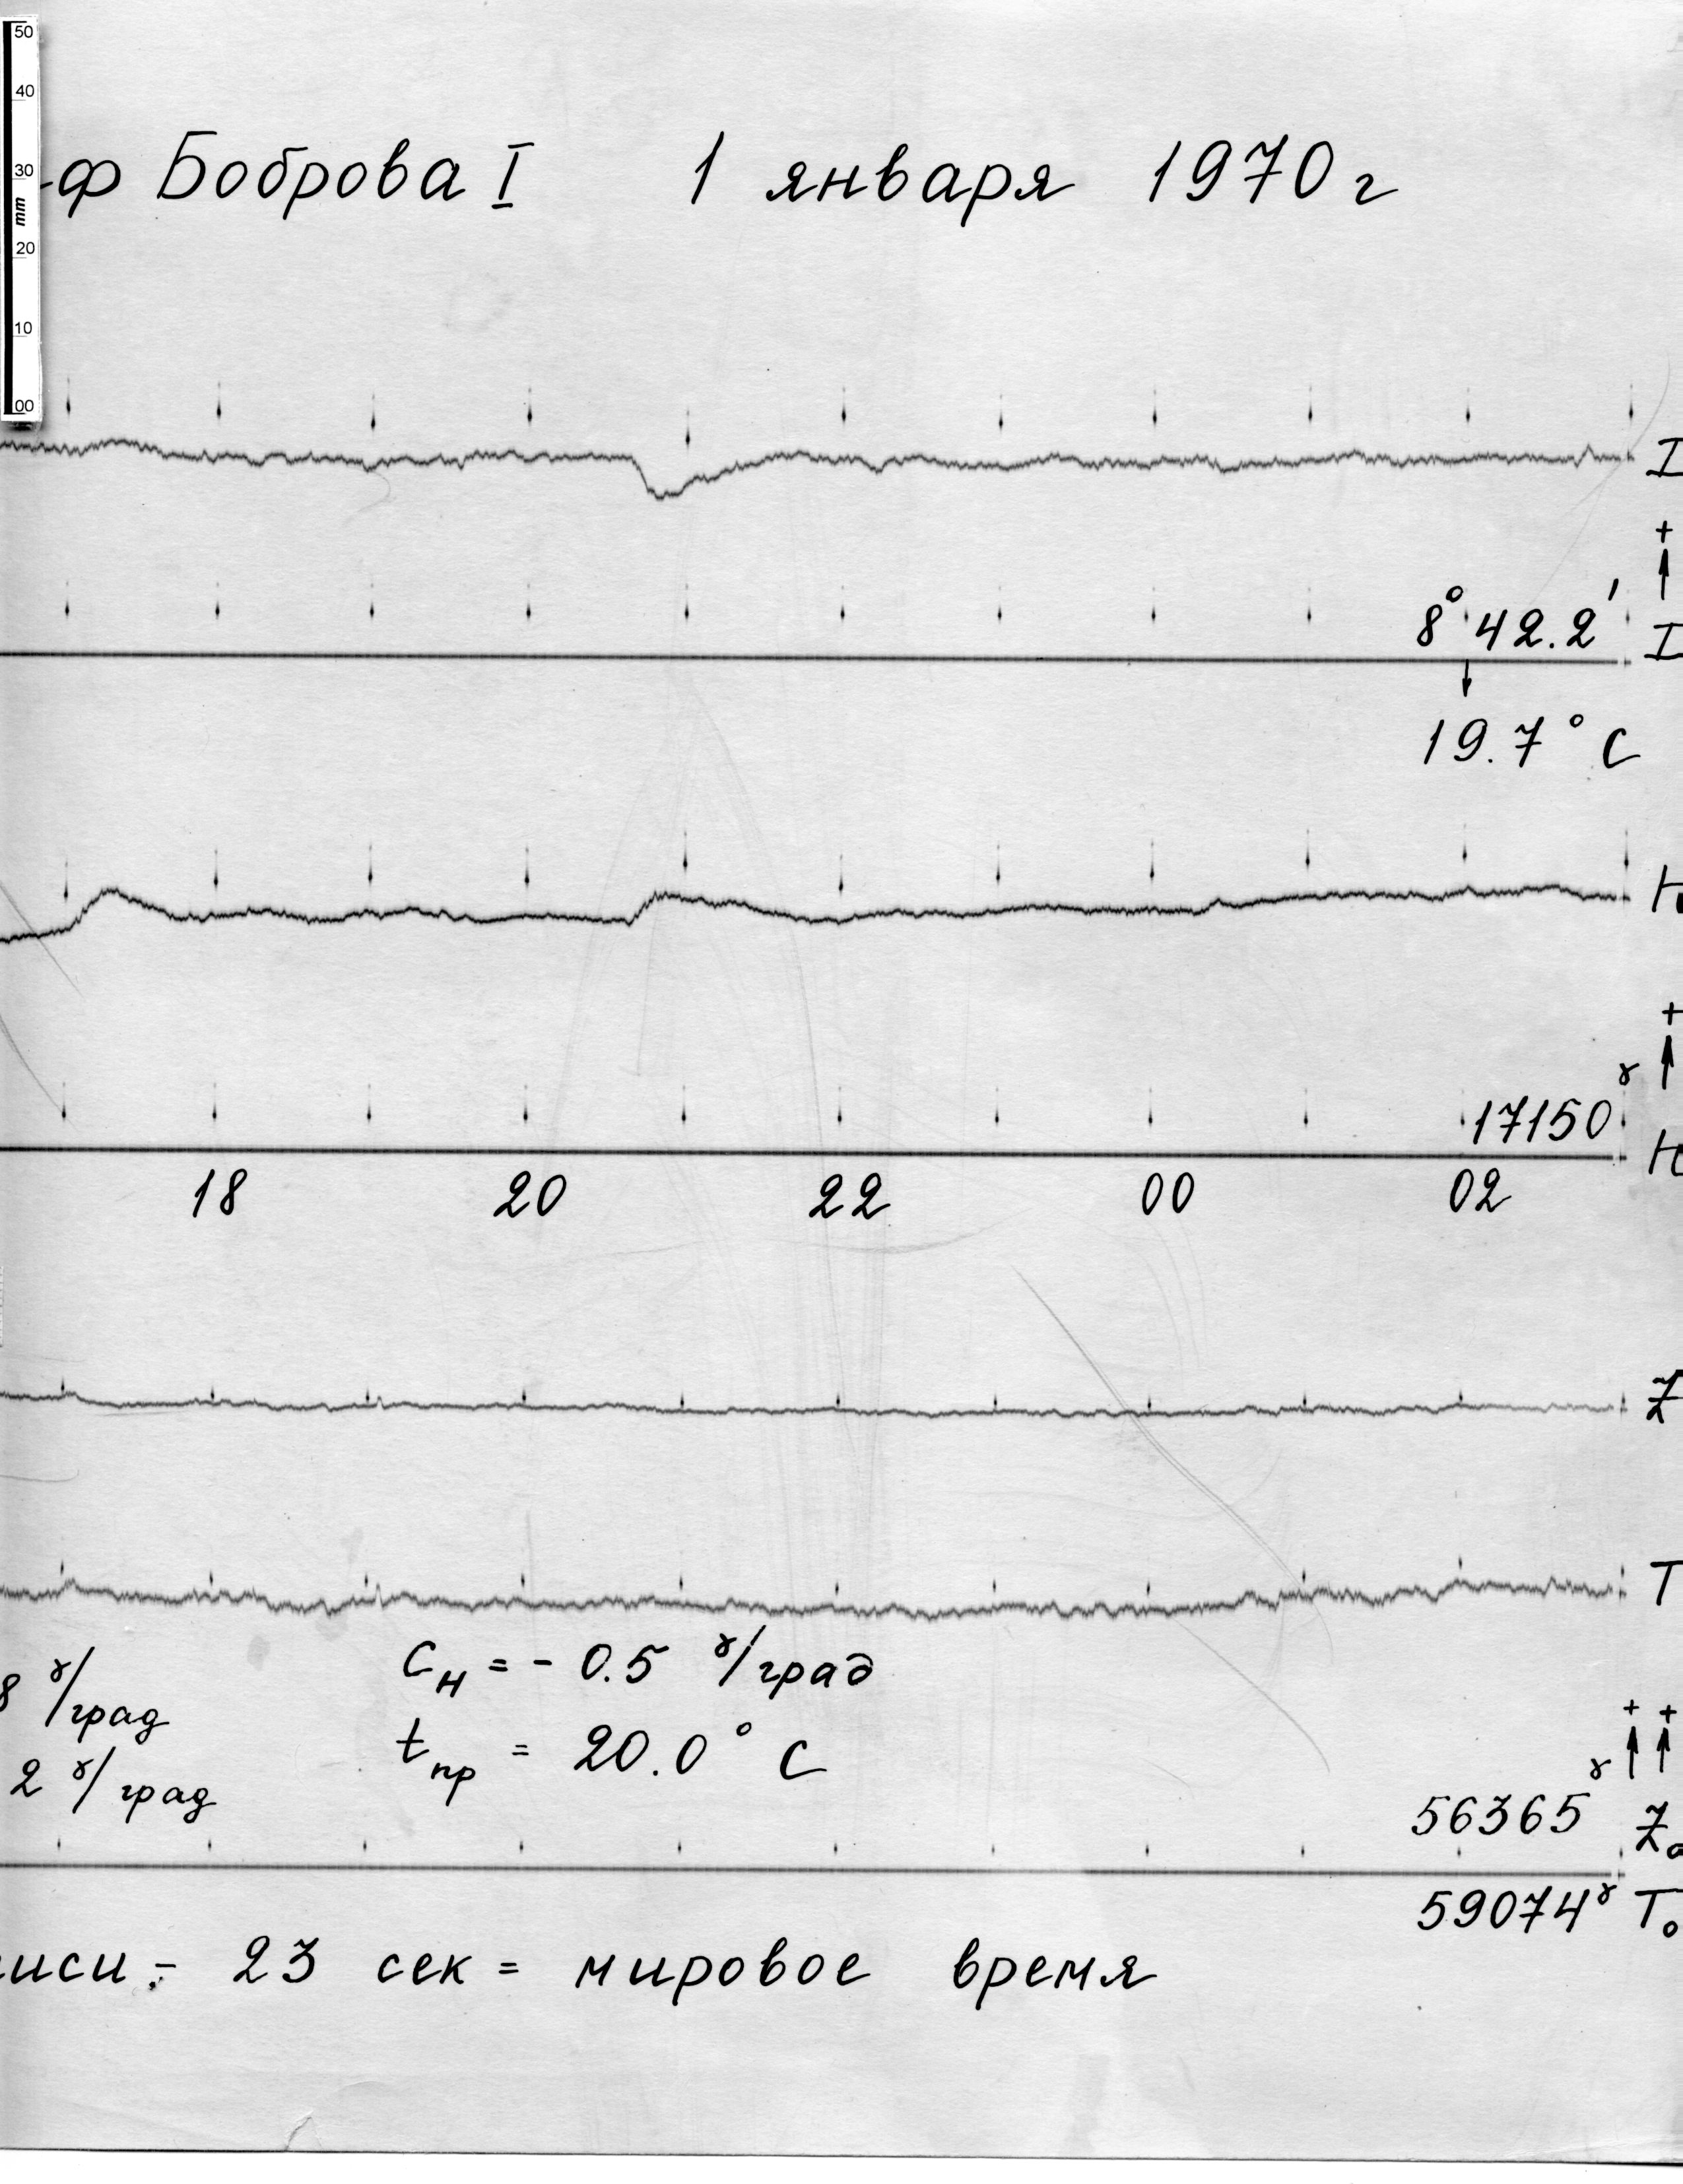 50
40
30
mm
20
10
00
-ф Боброва I 1 января 1970 г
I
+
8° 42.2′ I
19.7° C
H
+
17150 γ
H
18 20 22 00 02
Z
T
8 γ/град
2 γ/град
C_H = - 0.5 γ/град
t_пр = 20.0° C
+ +
56365 γ Z₀
59074 γ T₀
иси - 23 сек = мировое время